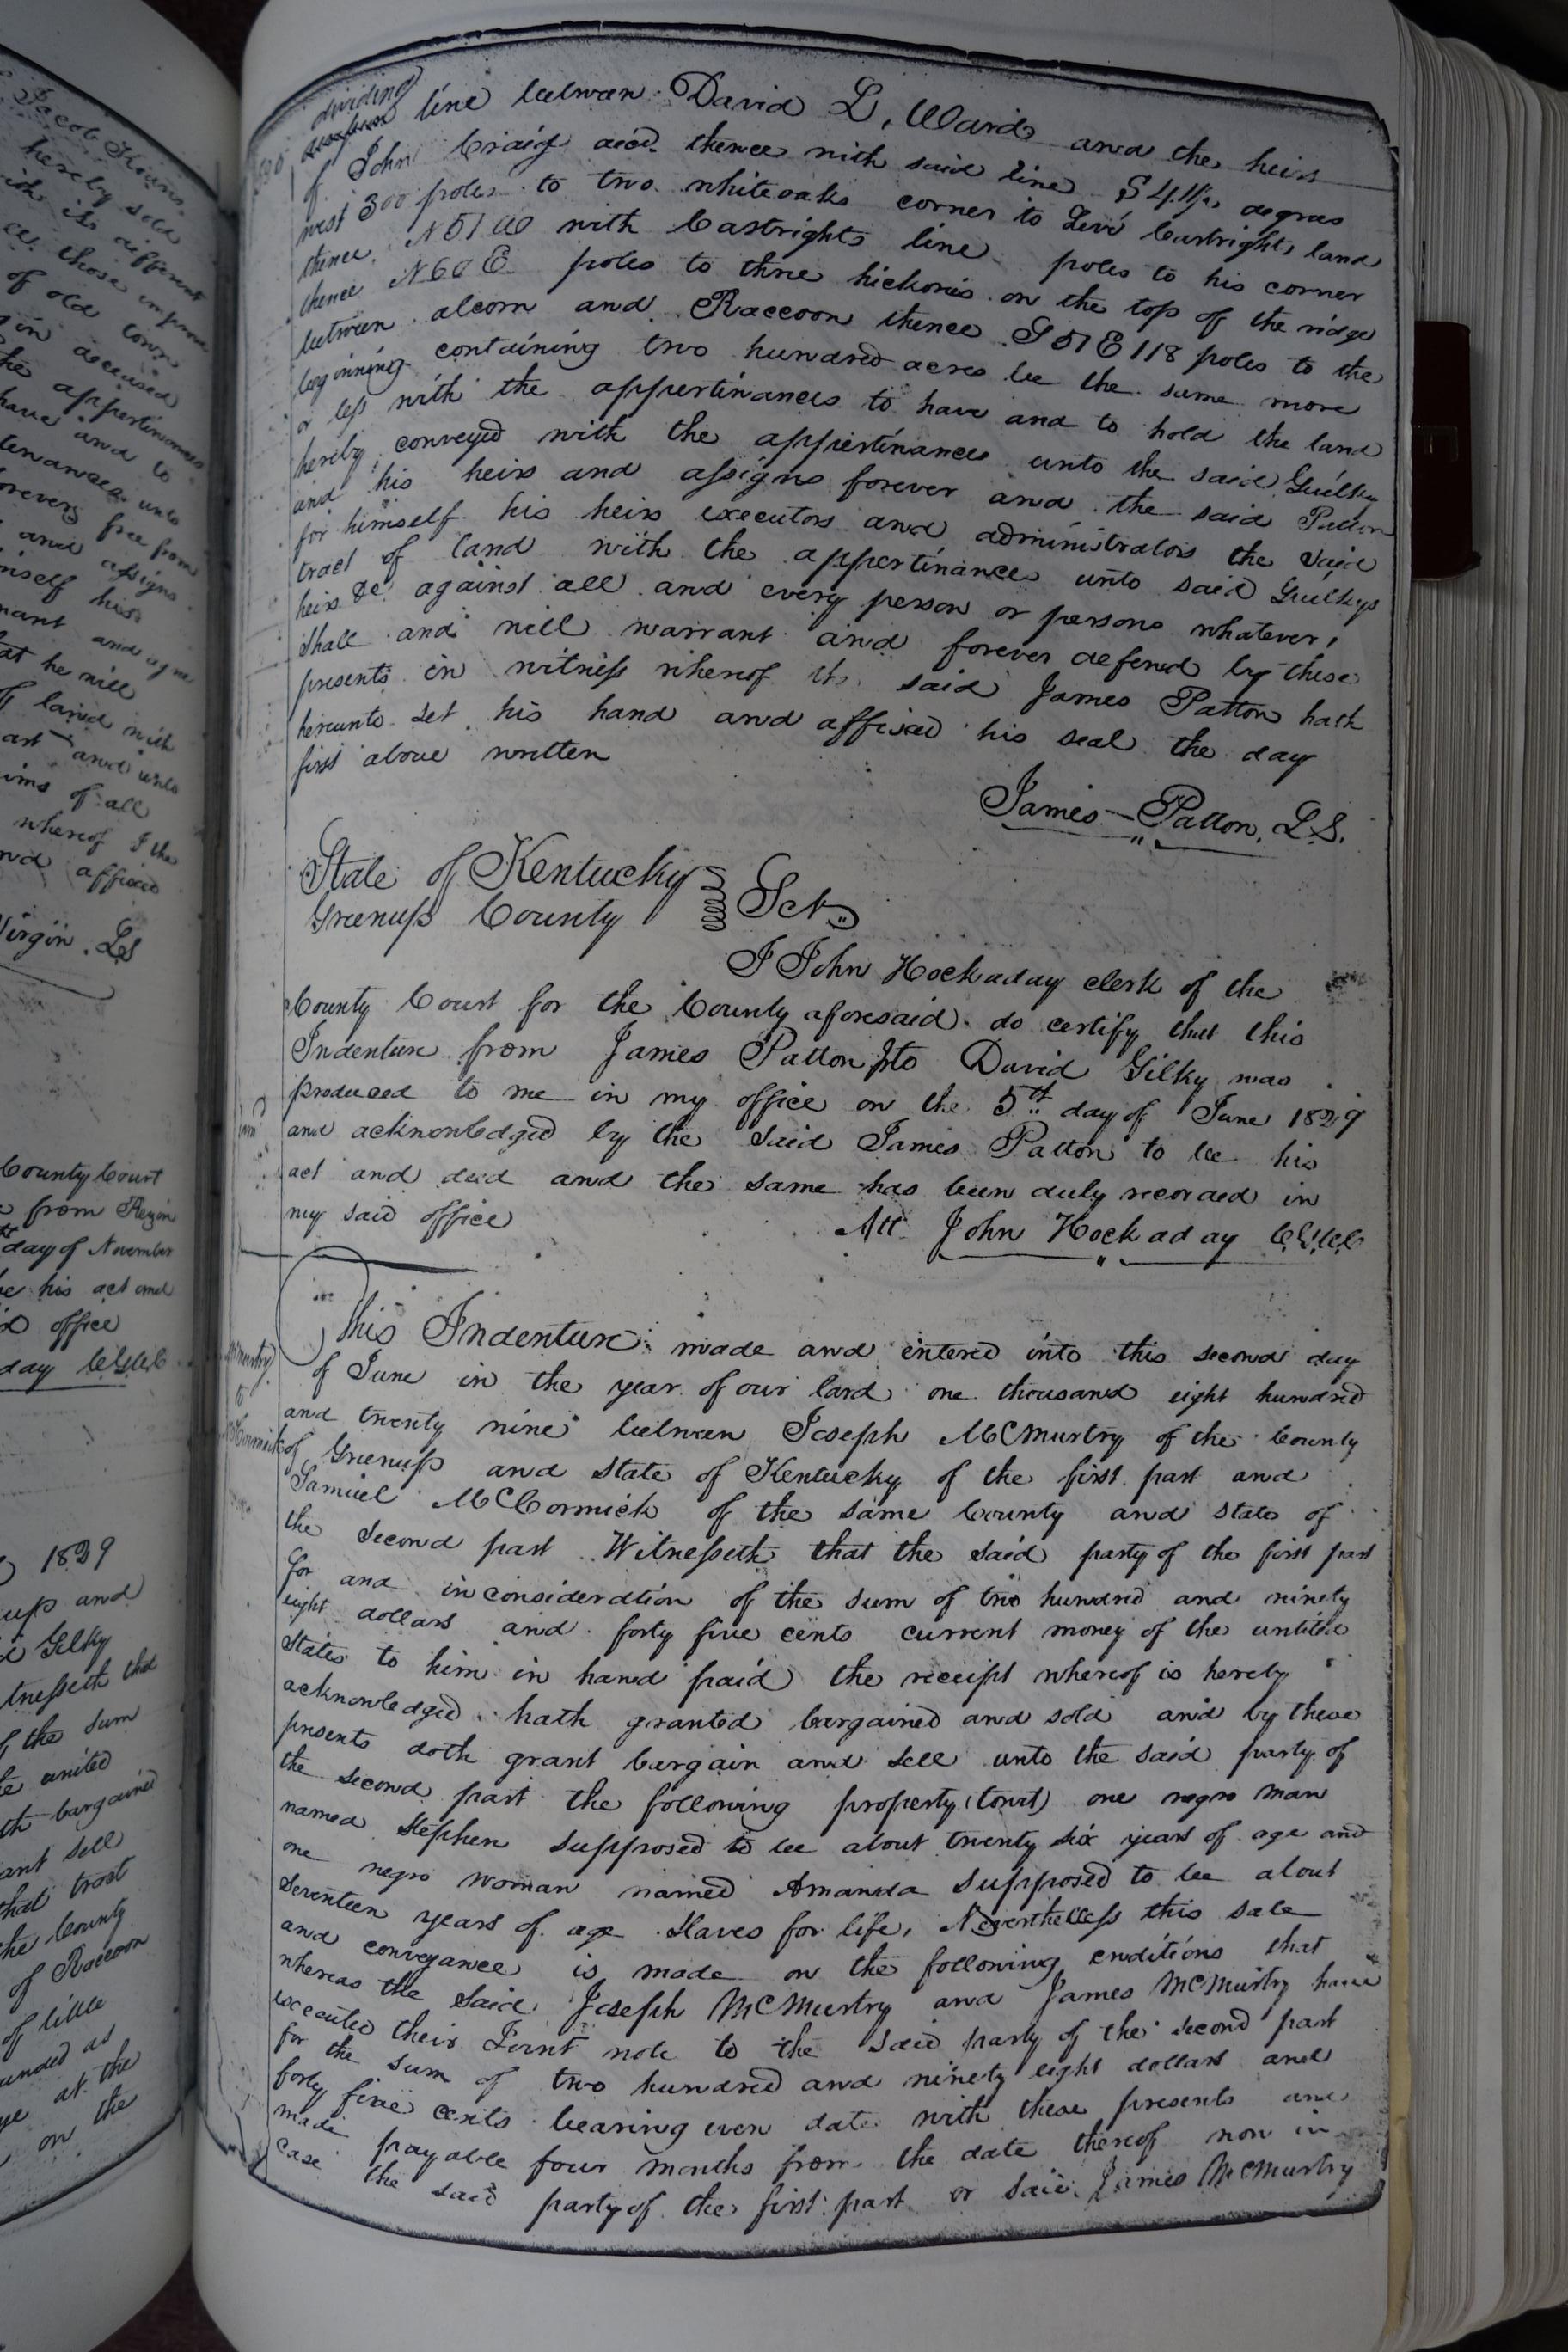 Jacob Kouns
hereby sold
its different
of old town
in deceased
the appertinances
have and to
unto
forever free from
and assigns
himself his
that he will
of land with
and unto
of all
whereof I the
and affixed
Virgin. LS
County Court
from Rezin
day of November
be his act and
office
day C.G.C.C.
1829
and
Gilky
that
of the sum
united
bargained
sell
that tract
the County
of Raccoon
of little
as
at the
on the
dividing
line between David L, Ward and the heirs
of John Craig decd. thence with said line S 41½ degrees
west 300 poles to two whiteoaks corner to Levi Cartrights land
thence N 51 W with Cartrights line poles to his corner
thence N 60 E poles to three hickories on the top of the ridge
between alcorn and Raccoon thence S 51 E 118 poles to the
beginning containing two hundred acres be the same more
or less with the appertinances to have and to hold the land
hereby conveyed with the appertinances unto the said Guilky
and his heirs and assigns forever and the said Patton
for himself his heirs executors and administrators the said
tract of land with the appertinances unto said Guilkys
heirs &c against all and every person or persons whatever,
shall and will warrant and forever defend by these
presents in witness whereof the said James Patton hath
hereunto set his hand and affixed his seal the day
first above written
James Patton, L.S.
State of Kentucky
Greenup County Sct
I John Hockaday clerk of the
County Court for the County aforesaid do certify that this
Indenture from James Patton to David Gilky was
produced to me in my office on the 5th day of June 1829
and acknowledged by the said James Patton to be his
act and deed and the same has been duly recorded in
my said office
Att John Hockaday C.G.C.C.
McMurtry
to
McCormick
This Indenture made and entered into this second day
of June in the year of our lard one thousand eight hundred
and twenty nine between Joseph McMurtry of the County
of Greenup and State of Kentucky of the first part and
Samuel McCormick of the same County and state of
the second part Witnesseth that the said party of the first part
for and in consideration of the sum of two hundred and ninety
eight dollars and forty five cents current money of the untited
States to him in hand paid the receipt whereof is hereby
acknowledged hath granted bargained and sold and by these
presents doth grant bargain and sell unto the said party of
the second part the following property (towit) one negro man
named Stephen supposed to be about twenty six years of age and
one negro woman named Amanda supposed to be about
seventeen years of age slaves for life, Nevertheless this sale
and conveyance is made on the following cnditions that
whereas the said Joseph McMurtry and James McMurtry have
executed their Joint note to the said party of the second part
for the sum of two hundred and ninety eight dollars and
forty five cents bearing even date with these presents and
made payable four months from the date thereof now in
case the said party of the first part or said James McMurtry